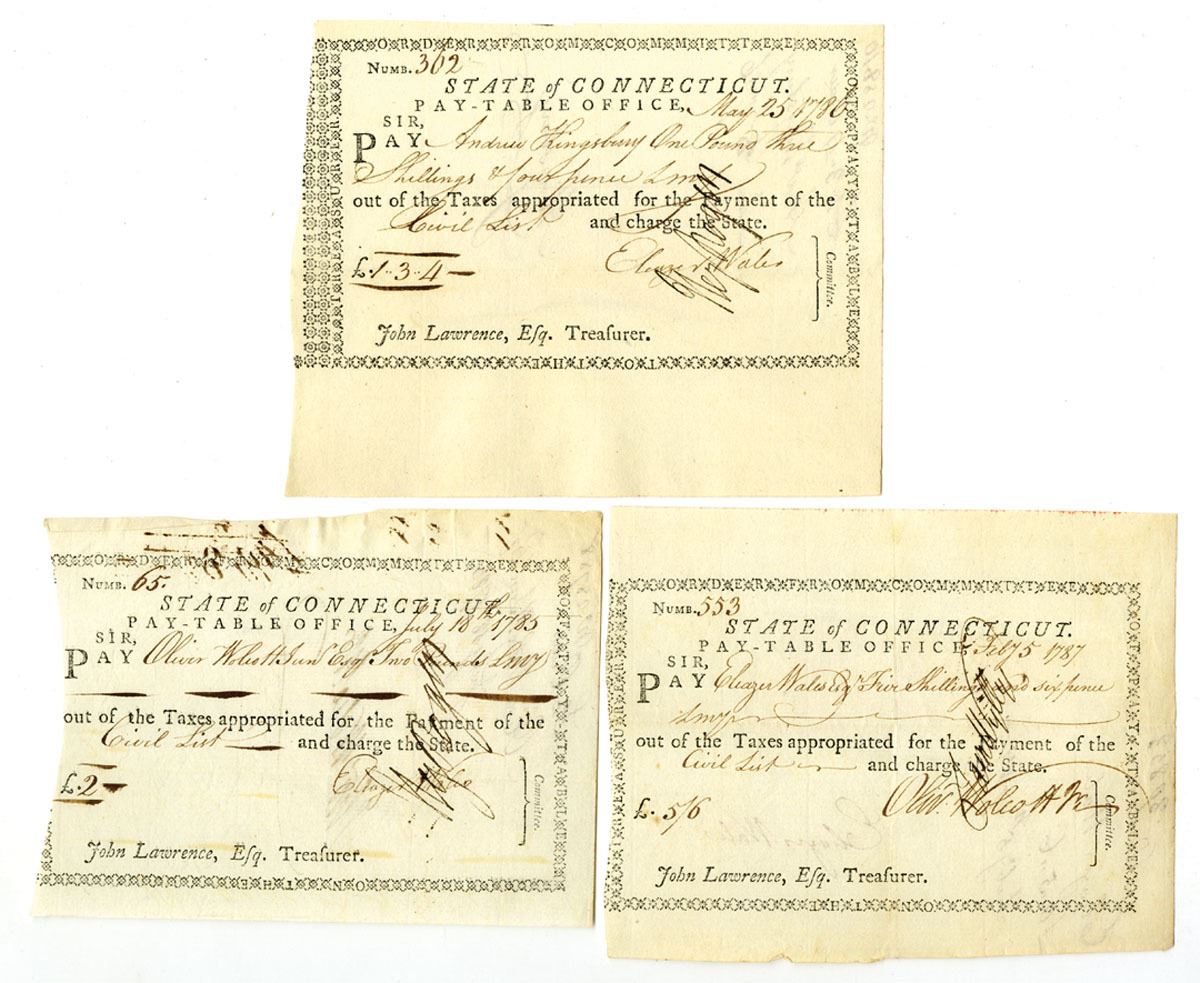 ORDER FROM COMMITTEE
OF PAY-TABLE
TO THE
TREASURER
NUMB. 362
STATE of CONNECTICUT.
PAY-TABLE OFFICE, May 25 1786
SIR,
PAY Andrew Kingsbury One Pound three
Shillings & four pence Lmy
out of the Taxes appropriated for the Payment of the
Civil List and charge the State.
£.1-3-4
Eleazer Wales
Committee.
John Lawrence, Eſq. Treaſurer.
ORDER FROM COMMITTEE
OF PAY-TABLE
ON THE
NUMB. 65
STATE of CONNECTICUT.
PAY-TABLE OFFICE, July 18th 1785
SIR,
PAY Oliver Wolcott Junr Esqr Two Pounds Lmy
out of the Taxes appropriated for the Payment of the
Civil List and charge the State.
£.2
Eleazer Wales
Committee.
John Lawrence, Eſq. Treaſurer.
ORDER FROM COMMITTEE
OF PAY-TABLE
ON THE
TREASURER
NUMB. 553
STATE of CONNECTICUT.
PAY-TABLE OFFICE, Feby 5 1787
SIR,
PAY Eleazer Wales Esqr Five Shillings and six pence
Lmy
out of the Taxes appropriated for the Payment of the
Civil List and charge the State.
£. 5/6
Olivr. Wolcott Jr
Committee.
John Lawrence, Eſq. Treaſurer.